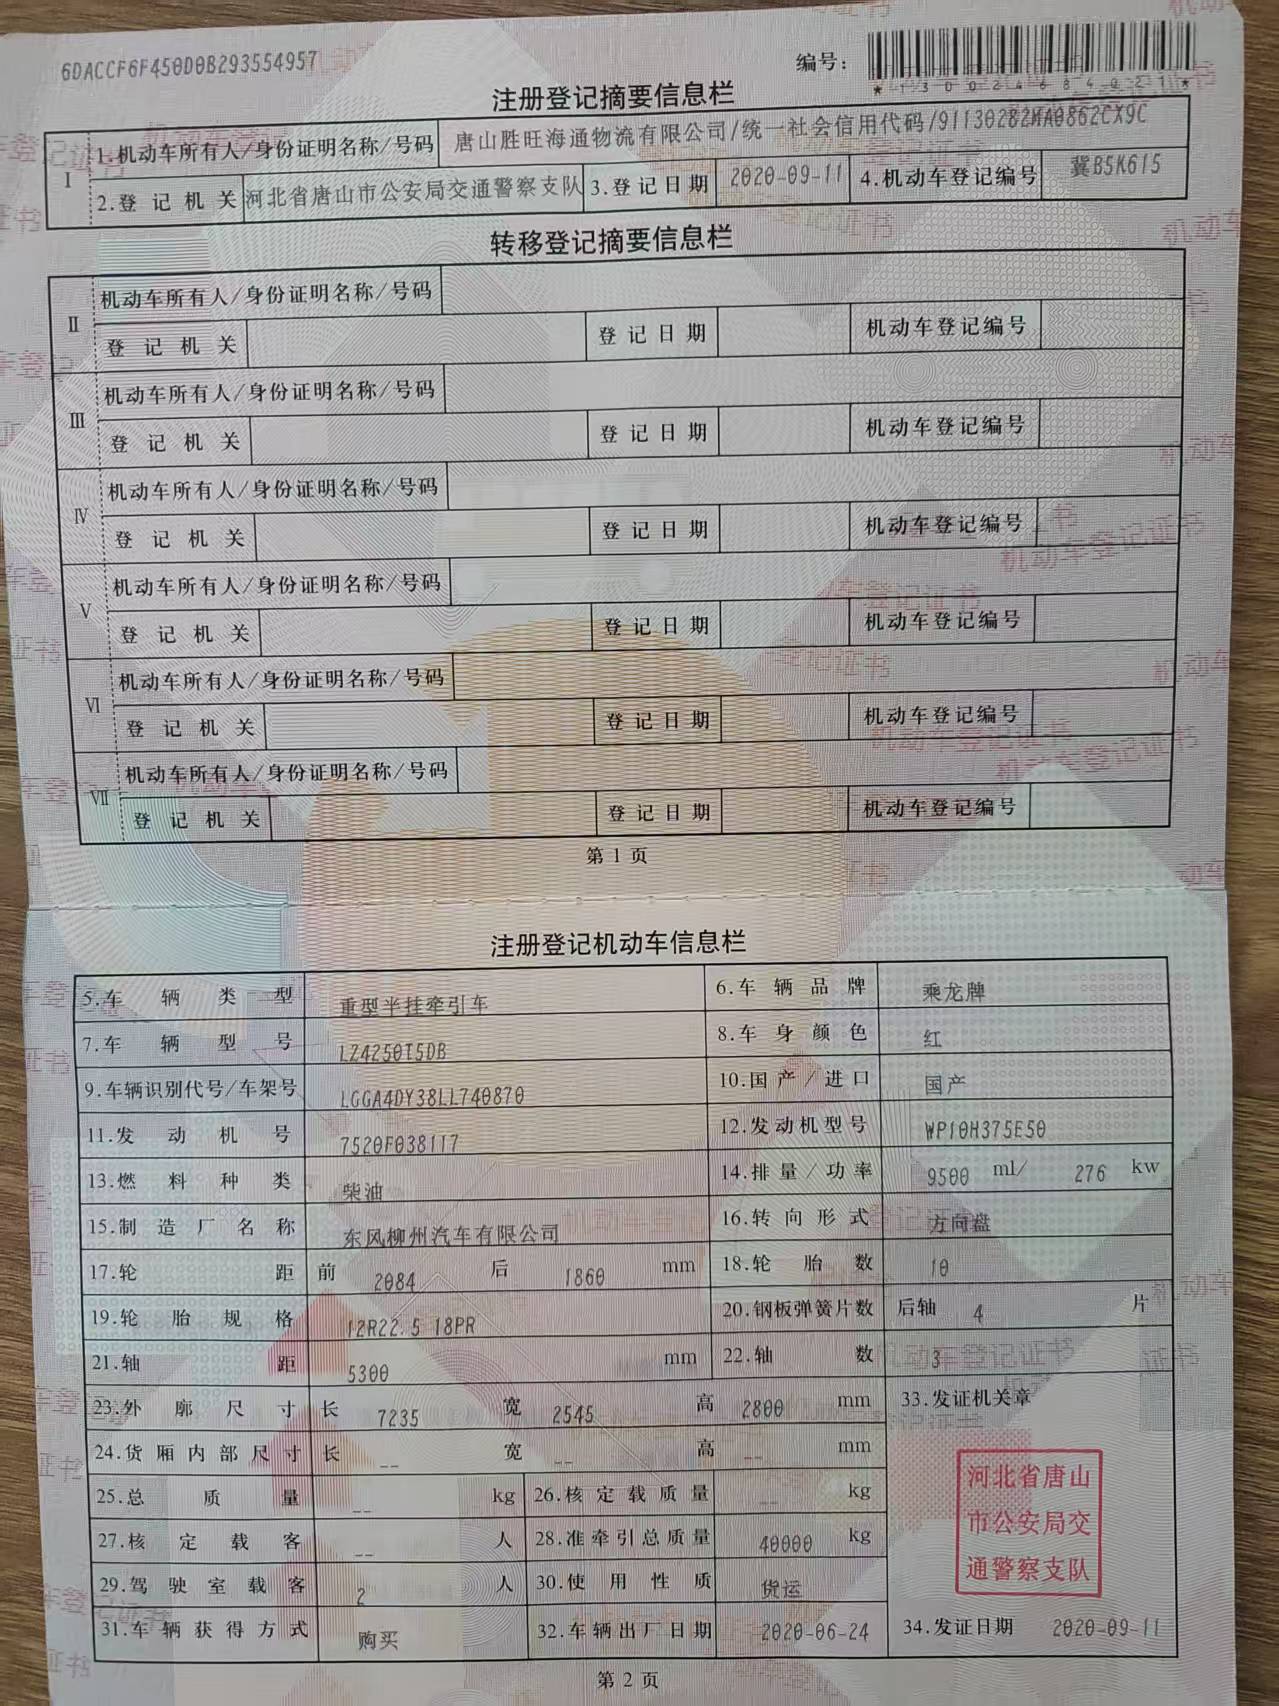 6DACCF6F450D0B293554957
编号：
*130024684021*
注册登记摘要信息栏
Ⅰ
1.机动车所有人/身份证明名称/号码 唐山胜旺海通物流有限公司/统一社会信用代码/91130282MA0862CX9C
2.登记机关 河北省唐山市公安局交通警察支队 3.登记日期 2020-09-11 4.机动车登记编号 冀B5K615
转移登记摘要信息栏
Ⅱ
机动车所有人/身份证明名称/号码
登记机关 登记日期 机动车登记编号
Ⅲ
机动车所有人/身份证明名称/号码
登记机关 登记日期 机动车登记编号
Ⅳ
机动车所有人/身份证明名称/号码
登记机关 登记日期 机动车登记编号
Ⅴ
机动车所有人/身份证明名称/号码
登记机关 登记日期 机动车登记编号
Ⅵ
机动车所有人/身份证明名称/号码
登记机关 登记日期 机动车登记编号
Ⅶ
机动车所有人/身份证明名称/号码
登记机关 登记日期 机动车登记编号
第1页
注册登记机动车信息栏
5.车辆类型 重型半挂牵引车 6.车辆品牌 乘龙牌
7.车辆型号 LZ4250T5DB 8.车身颜色 红
9.车辆识别代号/车架号 LGGA4DY38LL740870 10.国产/进口 国产
11.发动机号 7520F038117 12.发动机型号 WP10H375E50
13.燃料种类 柴油 14.排量/功率 9500 ml/ 276 kw
15.制造厂名称 东风柳州汽车有限公司 16.转向形式 方向盘
17.轮距 前 2084 后 1860 mm 18.轮胎数 10
19.轮胎规格 12R22.5 18PR 20.钢板弹簧片数 后轴 4 片
21.轴距 5300 mm 22.轴数 3
23.外廓尺寸 长 7235 宽 2545 高 2800 mm 33.发证机关章
24.货厢内部尺寸 长 -- 宽 -- 高 -- mm
25.总质量 -- kg 26.核定载质量 -- kg
27.核定载客 -- 人 28.准牵引总质量 40000 kg
29.驾驶室载客 2 人 30.使用性质 货运
31.车辆获得方式 购买 32.车辆出厂日期 2020-06-24 34.发证日期 2020-09-11
河北省唐山
市公安局交
通警察支队
第2页